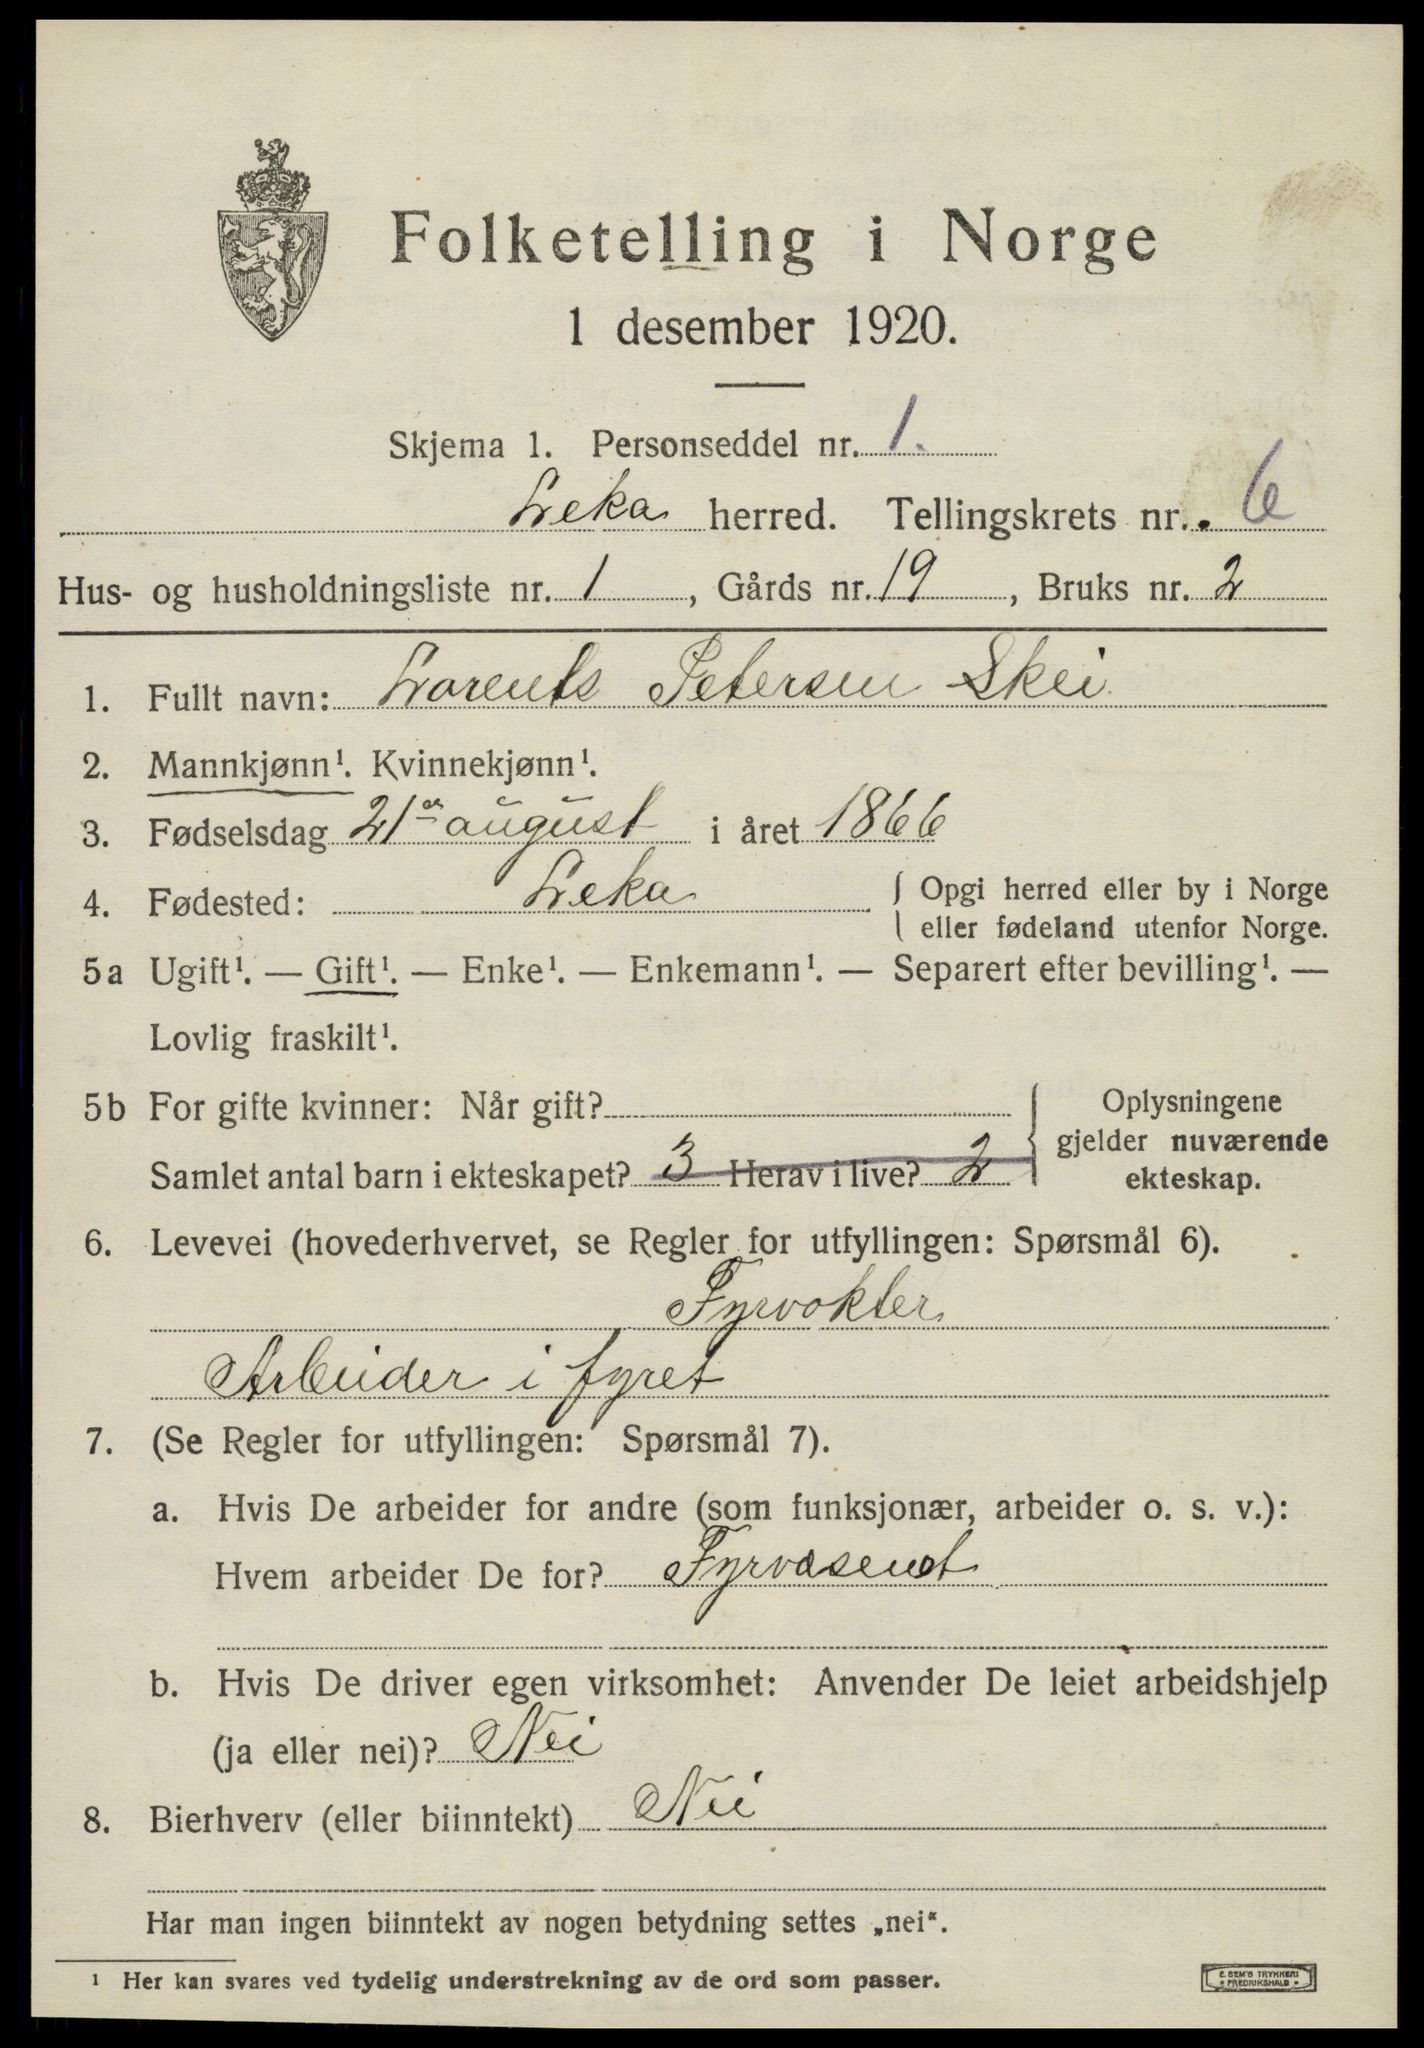 Folketelling i Norge
1 desember 1920.
Skjema 1. Personseddel nr. 1.
Leka herred. Tellingskrets nr. 6
Hus- og husholdningsliste nr. 1, Gårds nr. 19, Bruks nr. 2
1. Fullt navn: Lorents Petersen Skei
2. Mannkjønn¹. Kvinnekjønn¹.
3. Fødselsdag 21de august i året 1866
4. Fødested: Leka { Opgi herred eller by i Norge
eller fødeland utenfor Norge.
5a Ugift¹. — Gift¹. — Enke¹. — Enkemann¹. — Separert efter bevilling¹. —
Lovlig fraskilt¹.
5b For gifte kvinner: Når gift? } Oplysningene
gjelder nuværende
Samlet antal barn i ekteskapet? 3 Herav i live? 2 ekteskap.
6. Levevei (hovederhvervet, se Regler for utfyllingen: Spørsmål 6).
Fyrvokter
Arbeider i fyret
7. (Se Regler for utfyllingen: Spørsmål 7).
a. Hvis De arbeider for andre (som funksjonær, arbeider o. s. v.):
Hvem arbeider De for? Fyrvæsenet
b. Hvis De driver egen virksomhet: Anvender De leiet arbeidshjelp
(ja eller nei)? Nei
8. Bierhverv (eller biinntekt) Nei
Har man ingen biinntekt av nogen betydning settes „nei“.
¹ Her kan svares ved tydelig understrekning av de ord som passer.
E. SEM'S TRYKKERI
FREDRIKSHALD